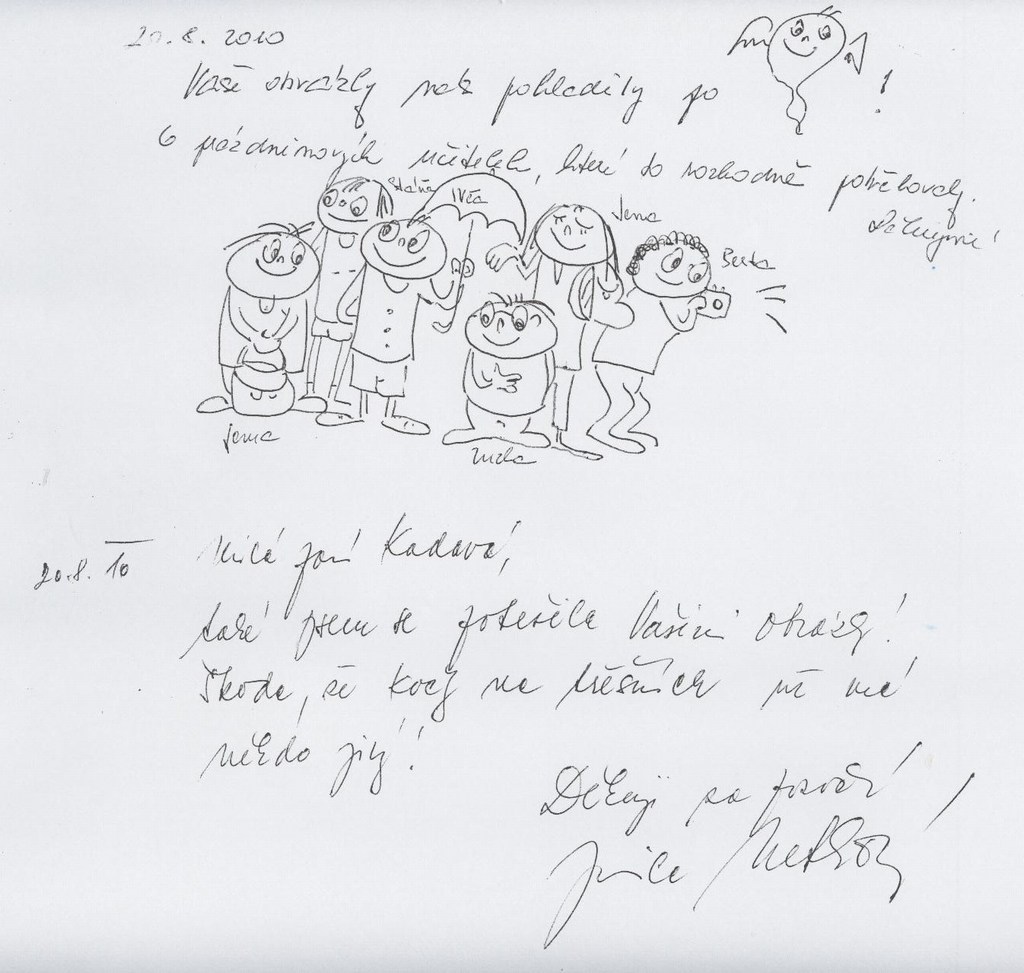 20.8.2010
Vaše obrázky nás pohladily po !
6 prázdninových učitelek, které to rozhodně potřebovaly.
Děkujeme!
Stáňa
Ivča
Jana
Berta
Jana
20.8.10
Milá paní Kadavá,
také jsem se potěšila Vašimi obrázky!
Škoda, že kočky na třešních už má
někdo jiný!
Děkuji za pozvání